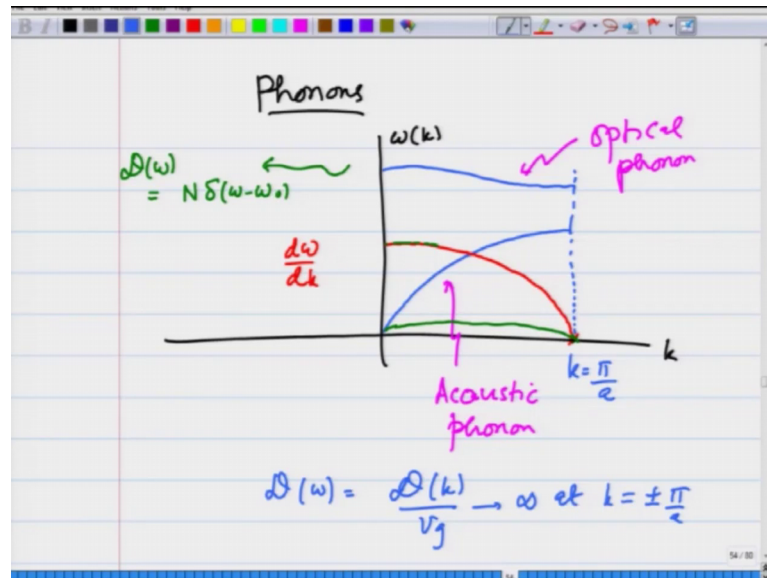 Phonons
ω(k)
optical
phonon
D(ω)
= Nδ(ω-ω₀)
dω
dk
k
k = π
a
Acoustic
phonon
D(ω) = D(k) → ∞ at k = ± π
vg a
54 / 80